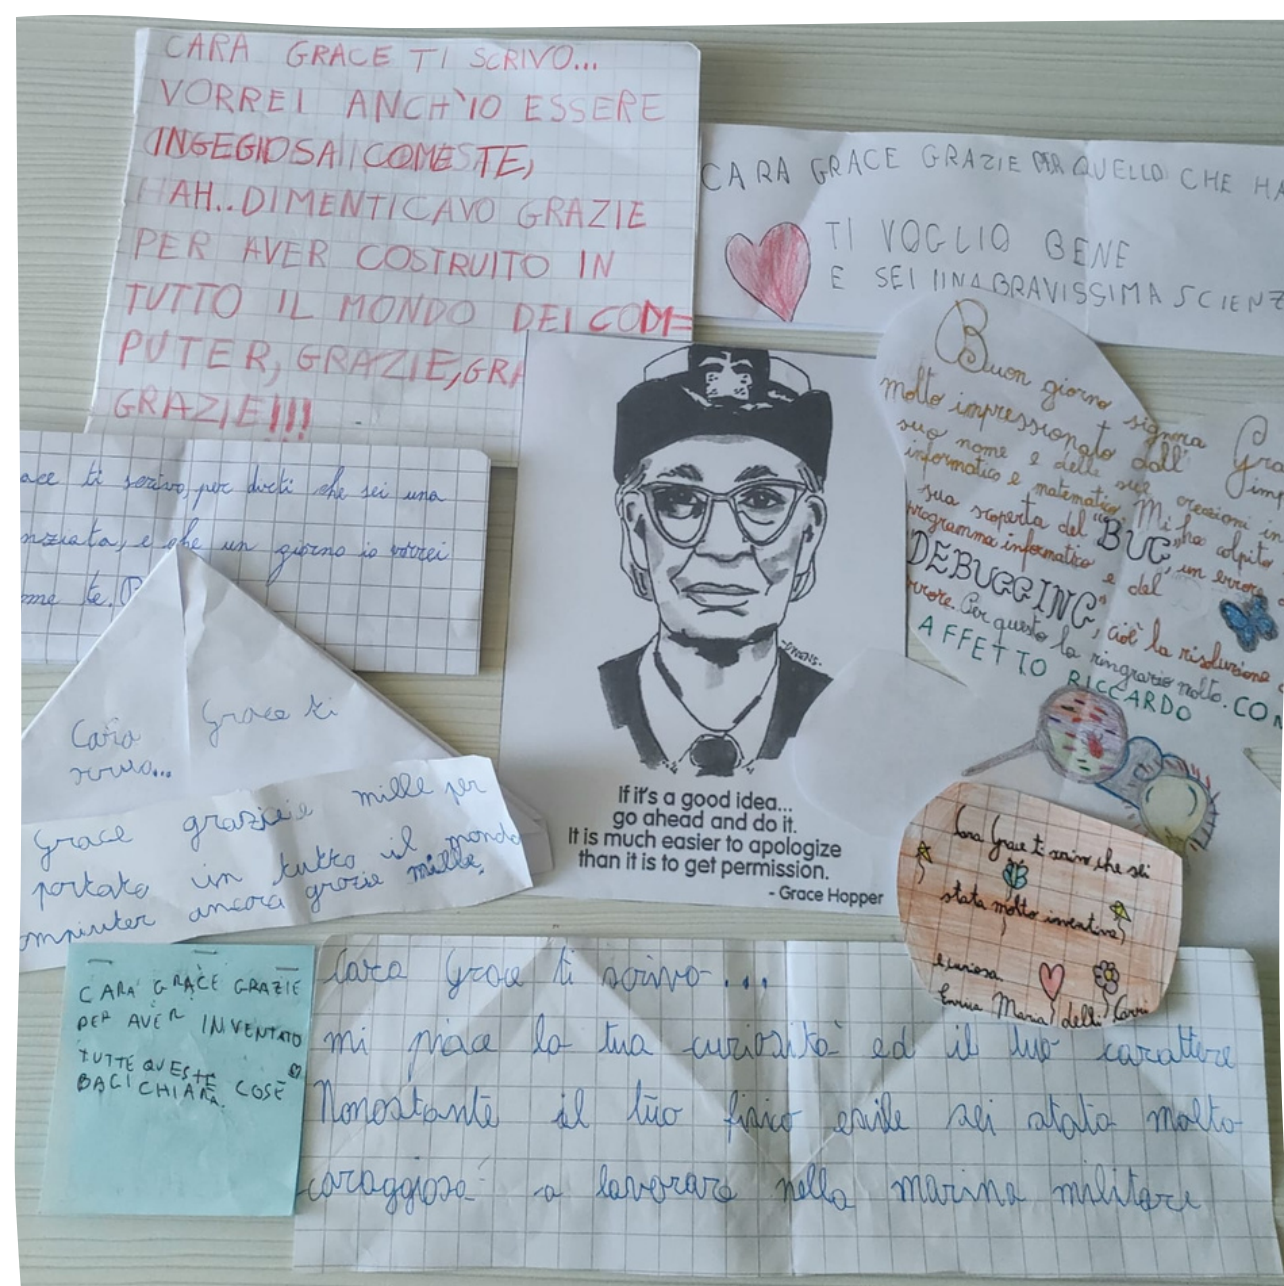 CARA GRACE TI SCRIVO...
VORREI ANCH'IO ESSERE
INGEGIOSA COME TE,
HAH..DIMENTICAVO GRAZIE
PER AVER COSTRUITO IN
TUTTO IL MONDO DEI COM=
PUTER, GRAZIE, GRA
GRAZIE!!!
CARA GRACE GRAZIE PER QUELLO CHE HA
TI VOGLIO BENE
E SEI UNA BRAVISSIMA SCIENZ
Buon giorno signora Gra
molto impressionato dall' imp
suo nome e delle sue creazioni in
informatico e matematico. Mi ha colpito
sua scoperta del "BUG", un errore
programma informatico e del
DEBUGGING", cioè la risoluzione
errore. Per questo la ringrazio molto. CON
AFFETTO RICCARDO
ace ti scrivo, per dirti che sei una
nziata, e che un giorno io vorrei
me te.
Cara Grace ti
scrivo...
Grace grazie mille per
portato in tutto il mondo
omputer ancora grazie mille.
OWENS.
If it's a good idea...
go ahead and do it.
It is much easier to apologize
than it is to get permission.
- Grace Hopper
Cara Grace ti scrivo che sei
stata molto inventiva
e curiosa
Enrica Maria delli Carri
CARA GRACE GRAZIE
PER AVER INVENTATO
TUTTE QUESTE COSE
BACI CHIARA.
Cara Grace ti scrivo...
mi piace la tua curiosità ed il tuo carattere
Nonostante il tuo fisico esile sei stata molto
coraggiosa a lavorare nella marina militare